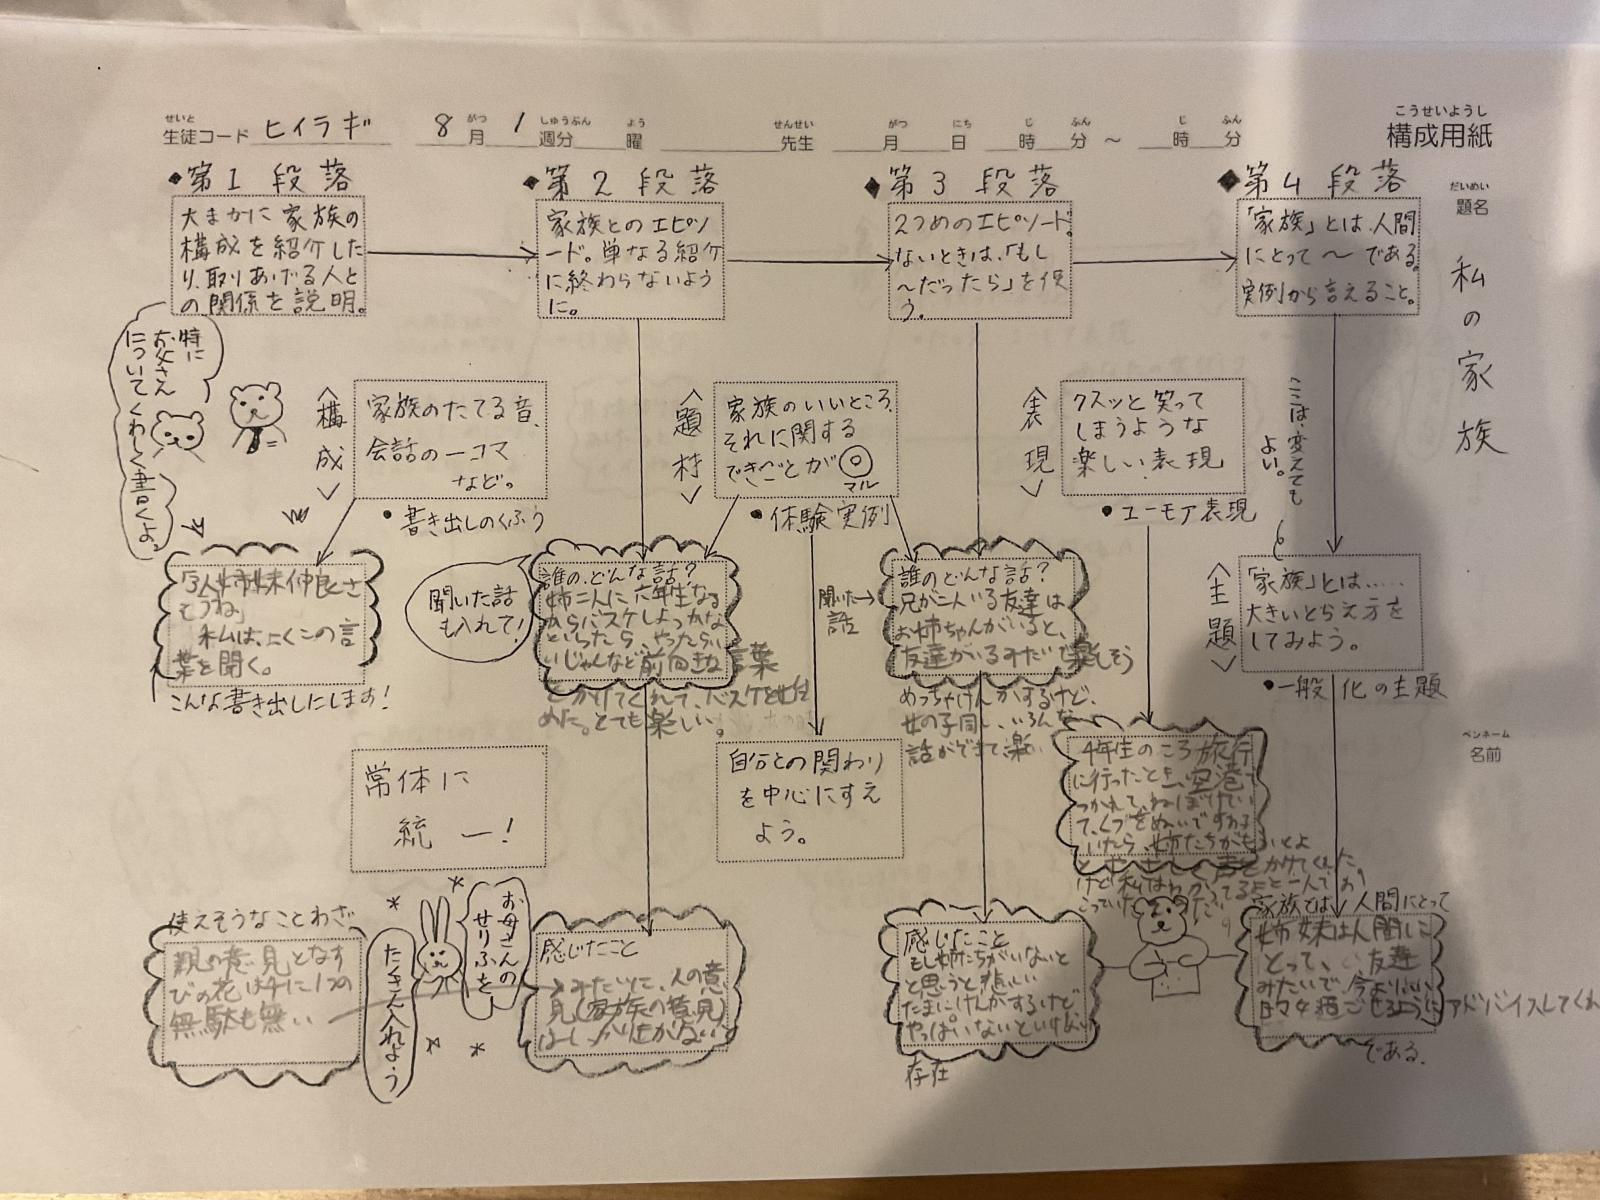 せいと
生徒コード ヒイラギ
8 月 がつ 1 週分 しゅうぶん 曜 よう
先生 せんせい
月 がつ 日 にち 時 じ 分 ふん ~ 時 じ 分 ふん
こうせいようし
構成用紙
だいめい
題名
私の家族
ペンネーム
名前
◆第1段落
大まかに家族の
構成を紹介した
り、取りあげる人と
の関係を説明。
◆第2段落
家族とのエピソ
ード。単なる紹介
に終わらないよう
に。
◆第3段落
2つめのエピソード。
ないときは、「もし
~だったら」を使
う。
◆第4段落
「家族」とは、人間
にとって~である。
実例から言えること。
特に
お父さん
についてくわしく書くよ。
〈構成〉
家族のたてる音、
会話の一コマ
など。
●書き出しのくふう
〈題材〉
家族のいいところ、
それに関する
できごとが◎
マル
●体験実例
〈表現〉
クスッと笑って
しまうような
楽しい表現
●ユーモア表現
ここは、変えても
よい。
〈主題〉
「家族」とは……
大きいとらえ方を
してみよう。
●一般化の主題
「3人姉妹仲良さ
そうね」
私は、よくこの言
葉を聞く。
こんな書き出しにします!
聞いた話
も入れて!
誰の、どんな話?
姉二人に六年生なる
からバスケしよっかな
といったら、やったらい
いじゃんなど前向きな言葉
とかけてくれて、バスケを始
めた。とても楽しい。
聞いた話→
誰のどんな話?
兄が二人いる友達は
お姉ちゃんがいると、
友達がいるみたいで楽しそう
めっちゃけんかするけど、
女の子同し、いろんな
話ができて楽
常体に
統一!
自分との関わり
を中心にすえ
よう。
4年生のころ旅行
に行ったとき、空港で
つかれて、ねぼけてい
て、くつをぬいですわ
いたら、姉たちが
声をかけてくれた
けど私は
使えそうなことわざ
親の意見となす
びの花は千に1つの
無駄も無い
お母さんの
せりふを
たくさん入れよう
感じたこと
みたいに、人の意
見(家族の意見)
はしっかり生かない
感じたこと
もし姉たちがいないと
と思うと悲しい
たまにけんかするけど
やっぱいないといけない
存在
家族とは、人間にとって
姉妹は人間に
とって、い友達
みたいで、今よりいい
日々過ごせるようにアドバイスしてくれ
である。